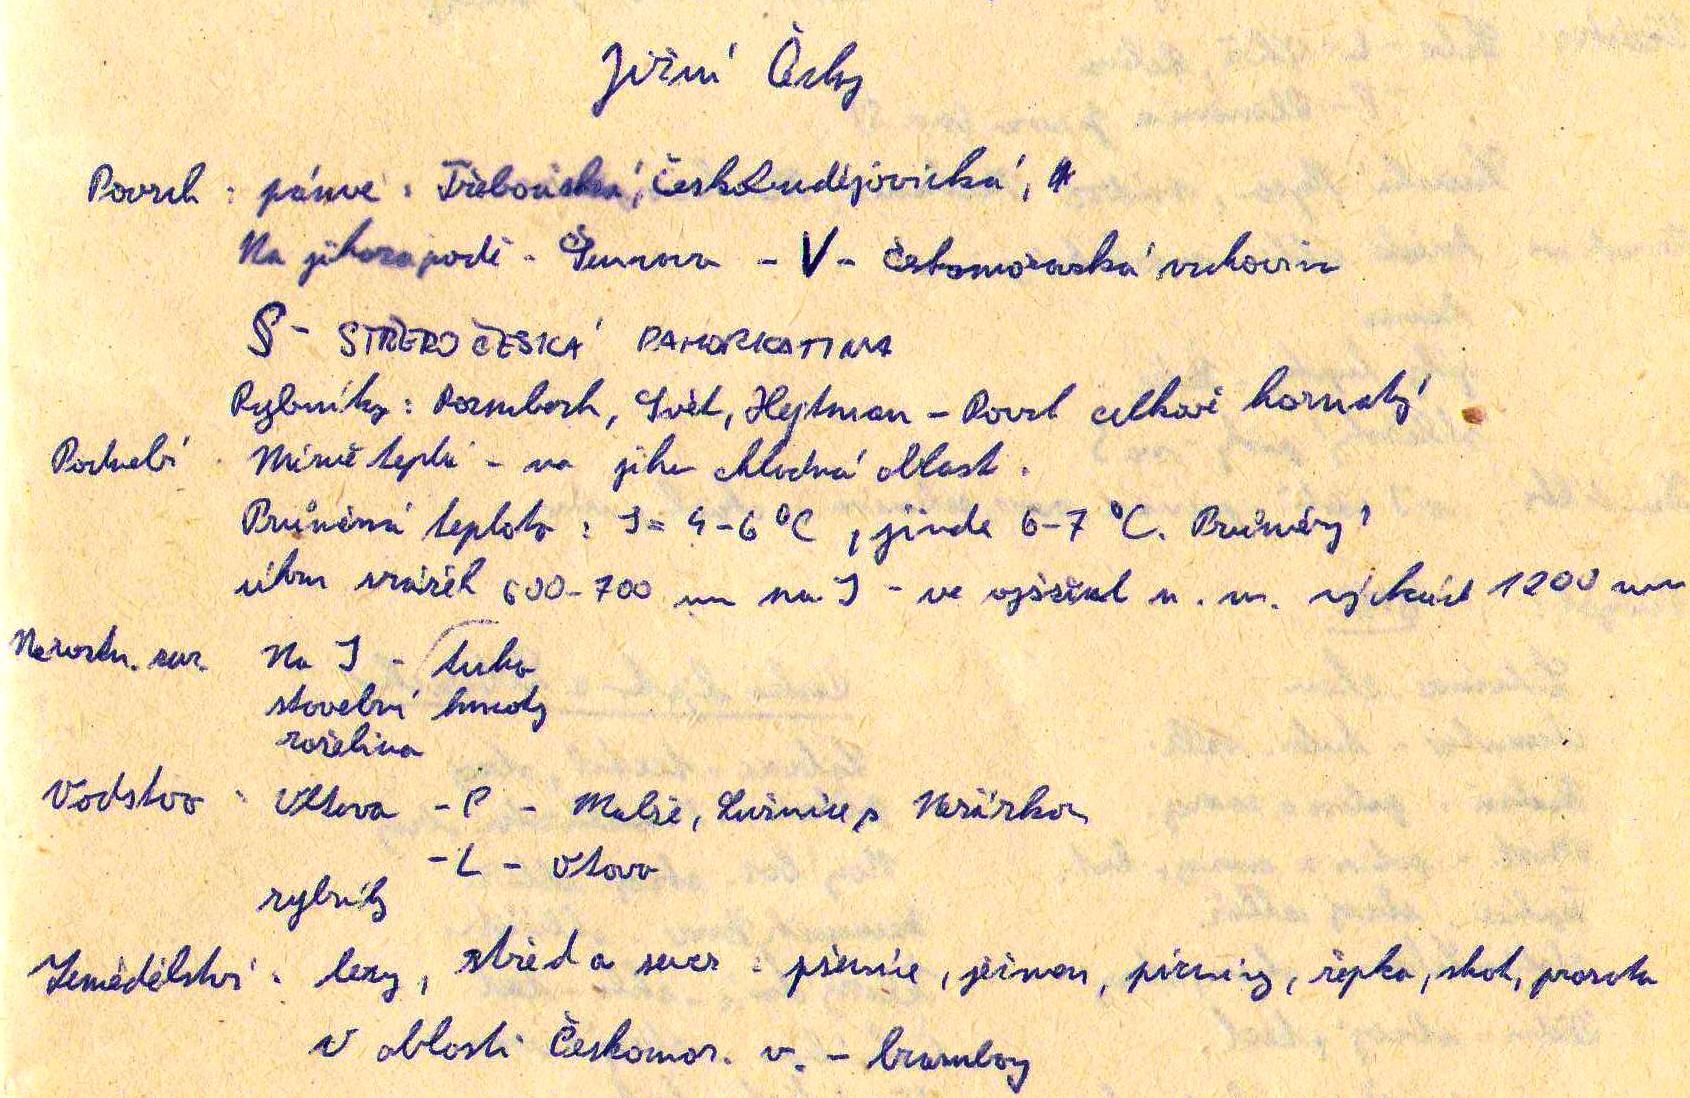 Jižní Čechy
Povrch : pánve : Třeboňská, Českobudějovická,
Na jihozápadě - Šumava - V - Českomoravská vrchovina
S - STŘEDOČESKÁ PAHORKATINA
Rybníky : Rožmberk, Svět, Hejtman - Povrch celkově hornatý
Podnebí : Mírně teplé - na jihu chladná oblast.
Průměrná teplota : J = 4-6 °C, jinde 6-7 °C. Průměrný
úhrn srážek 600-700 mm na J - ve vyšších n. m. výškách 1200 mm
Nerostn. sur. Na J - tuha
stavební hmoty
rašelina
Vodstvo : Vltava - P - Malše, Lužnice, Nežárka
- L - Otava
rybníky
Zemědělství : lesy, střed a sever : pšenice, ječmen, pícniny, řepka, skot, prasata
V oblasti Českomor. v. - brambory